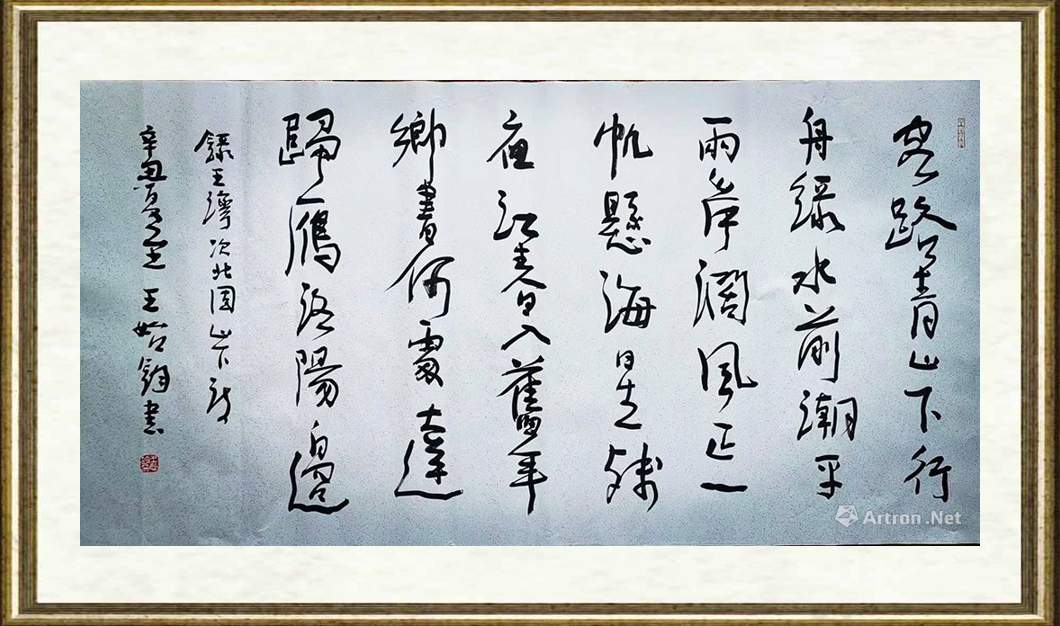 客路青山下行
舟綠水前潮平
兩岸闊風正一
帆懸海日生殘
夜江春日入舊年
鄉書何處達
歸鴈洛陽邊
錄王灣次北固山下詩
辛丑夏至 王始鈞書
Artron.Net